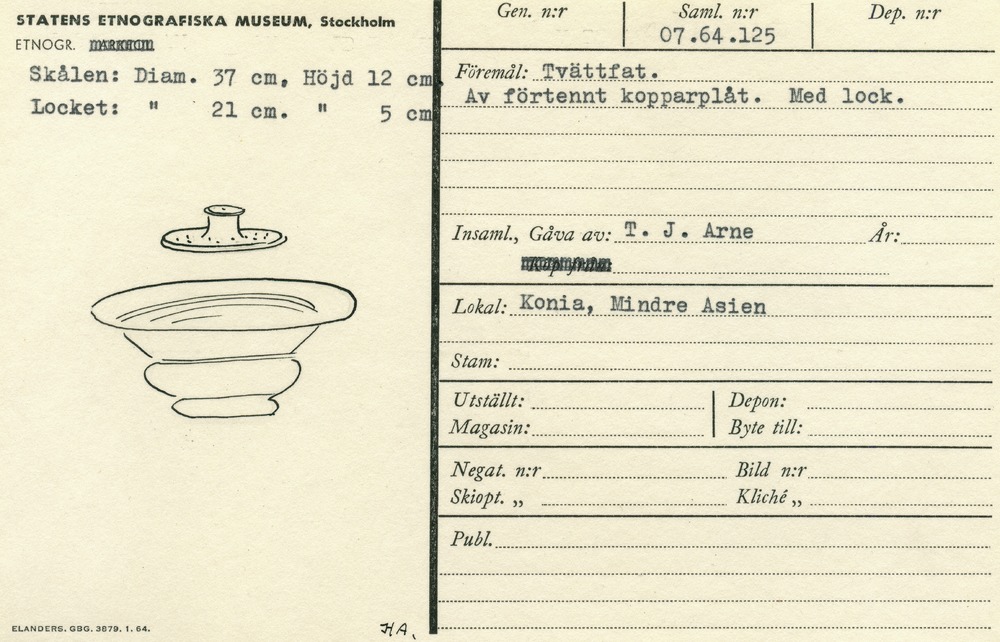 STATENS ETNOGRAFISKA MUSEUM, Stockholm
ETNOGR.
Skålen: Diam. 37 cm, Höjd 12 cm
Locket: " 21 cm. " 5 cm
ELANDERS. GBG. 3879. 1. 64.
HA.
Gen. n:r Saml. n:r Dep. n:r
07.64.125
Föremål: Tvättfat.
Av förtennt kopparplåt. Med lock.
Insaml., Gåva av: T. J. Arne År:
Köp från:
Lokal: Konia, Mindre Asien
Stam:
Utställt: Depon:
Magasin: Byte till:
Negat. n:r Bild n:r
Skiopt. „ Kliché „
Publ.